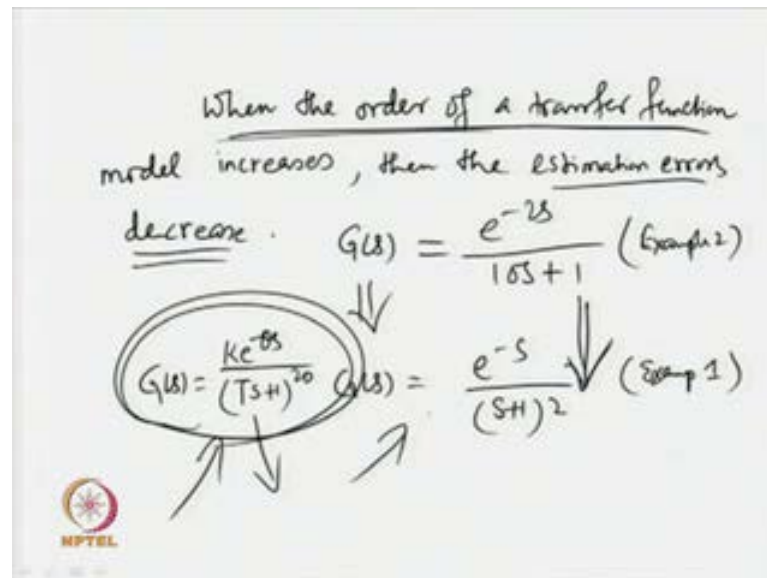 When the order of a transfer function
model increases, then the estimation errors
decrease.
G(s) = e^{-2s} / (10s+1) (Example 2)
G(s) = Ke^{-θs} / (Ts+1)^{20}
G(s) = e^{-s} / (s+1)^2 (Examp 1)
NPTEL